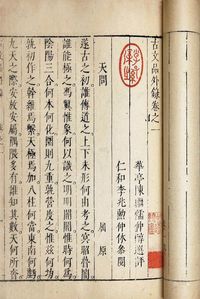 古文品外錄卷之一
華亭陳繼儒仲醇選評
仁和李兆勳 休參閱
天問
屈原
遂古之初誰傳道之上下未形何由考之冥昭瞢闇
誰能極之馮翼惟象何以識之明明闇闇惟時何為
陰陽三合何本何化圜則九重孰營度之惟茲何功
孰初作之斡維焉繫天極焉加八柱何當東南何虧
九天之際安放安屬隅隈多有誰知其數天何所沓